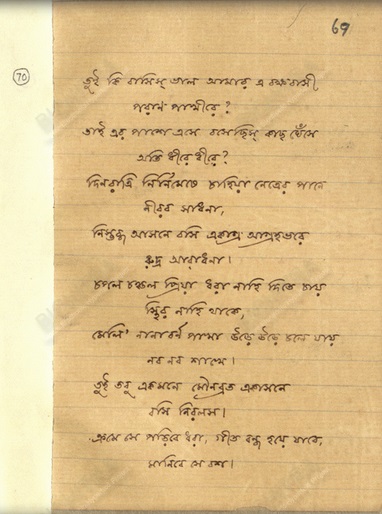 69
70
তুই কি বাসিস্ ভাল আমার এ বক্ষবাসী
পরাণ পাখীরে?
তাই এর পাশে এসে বসেছিস্ কাছ ঘেঁসে
অতি ধীরে ধীরে?
দিনরাত্রি নির্নিমেষে চাহিয়া নেত্রের পানে
নীরব সাধনা,
নিস্তব্ধ আসনে বসি একাগ্র আগ্রহভরে
রুদ্র আরাধনা।
চপল চঞ্চল প্রিয়া ধরা নাহি দিতে চায়
স্থির নাহি থাকে,
মেলি' নানাবর্ণ পাখা উড়ে উড়ে চলে যায়
নব নব শাখে।
তুই তবু একমনে মৌনব্রত একাসনে
বসি নিরলস।
ক্রমে সে পড়িবে ধরা, গীত বন্ধ হয়ে যাবে,
মানিবে সে বশ।